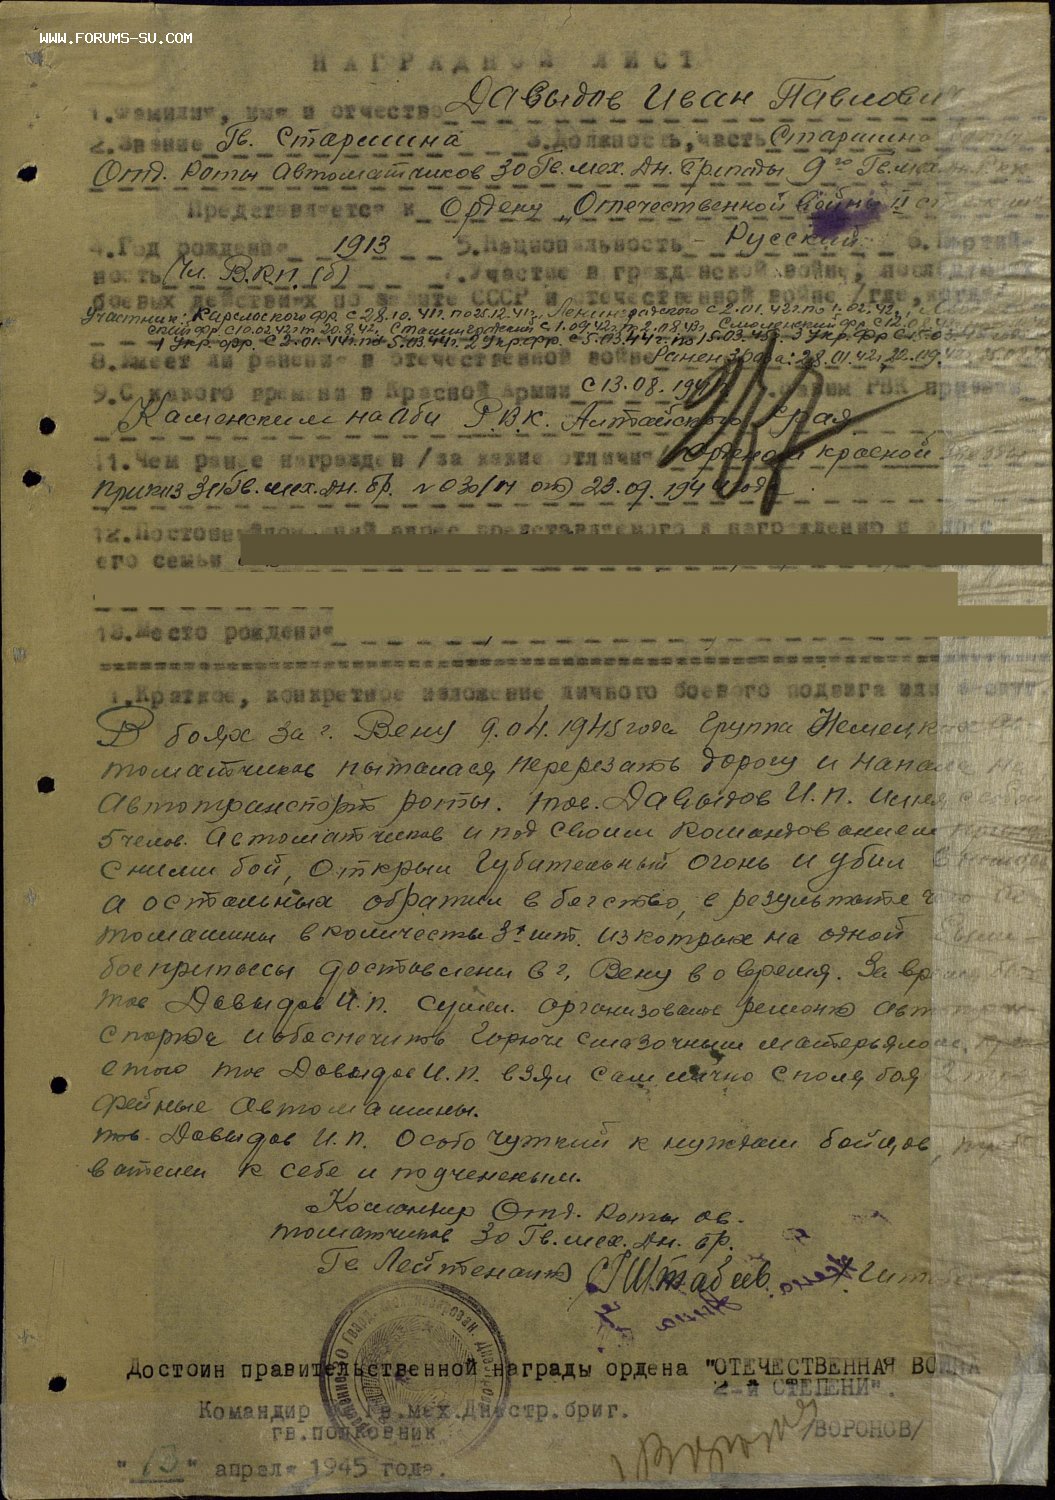 WWW.FORUMS-SU.COM
НАГРАДНОЙ ЛИСТ
1.Фамилия, имя и отчество Давыдов Иван Павлович
2.Звание Гв. Старшина 3.Должность, часть Старшина
Отд. Роты Автоматчиков 30 Гв. мех. Дн. Бригады 9го Гв.
Представляется к Ордену „Отечественной Войны II
4.Год рождения 1913 5.Национальность - Русский 6.Партий-
ность Чл. ВКП.(б) 7.Участие в гражданской войне, последующих
боевых действиях по защите СССР и отечественной войне /где, когда/
Участник: Карельского фр с 28.10.41г. по 25.12.41г. Ленинградского с 2.01.42г. по 1.02.42г.
фр. с 10.02.42г. 20.8.42г. Сталинградский с 1.09.42г. Смоленский фр.
1 Укр. фр. с 2.01.44г. по 5.03.44г. 2 Укр. фр с 5.03.44г. по 15.03.45г. 3 Укр. фр с 15.03.45
8.Имеет ли ранения в отечественной войне Ранен 3 раза: 28.01.42г.
9.С какого времени в Красной Армии с 13.08.1941г. 10.Каким РВК призван
Каменским на Оби Р.В.К. Алтайского Края
11.Чем ранее награжден /за какие отличия/ Орденом красной звезды
приказ 30 Гв. мех. Дн. бр. N 030/н от 23.09.1944 года
12.Постоянный домашний адрес представляемого к награждению и адрес
его семьи
13.Место рождения
1.Краткое, конкретное изложение личного боевого подвига или
В боях за г. Вену 9.04.1945 года группа Немецких
томатчиков пыталася перерезать дорогу и напала на
Автотранспорт роты. тов. Давыдов И.П. имея с собой
5 челов. Автоматчиков и под своим командованием
с ними бой, открыл Губительный огонь и убил
а остальных обратил в бегство, в результате чего
томашины в количестве 3х шт. из которых на одной были
боеприпассы доставлены в г. Вену во время. За время
тов Давыдов И.П. сумел организовать ремонт Автотран-
спорта и обеспечить Горюче смазочным матерьялом,
етого тов Давыдов И.П. взял сам лично с поля боя 2 тро-
фейные автомашины.
тов. Давыдов И.П. особо чуткий к нуждам бойцов,
вателен к себе и подчененым.
Командир Отд. роты ав-
томатчиков 30 Гв. мех. Дн. бр.
Гв Лейтенант
Достоин правительственной награды ордена "ОТЕЧЕСТВЕННАЯ ВОЙНА
2-й СТЕПЕНИ".
Командир Гв.мех.Днестр.бриг.
гв.полковник /ВОРОНОВ/
"13" апреля 1945 года.